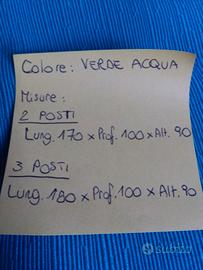 Colore: VERDE ACQUA
Misure:
2 POSTI
Lung. 170 x Prof. 100 x Alt. 90
3 POSTI
Lung. 180 x Prof. 100 x Alt. 90
subito